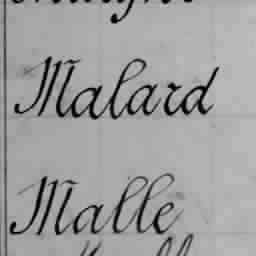 Malard
Malle